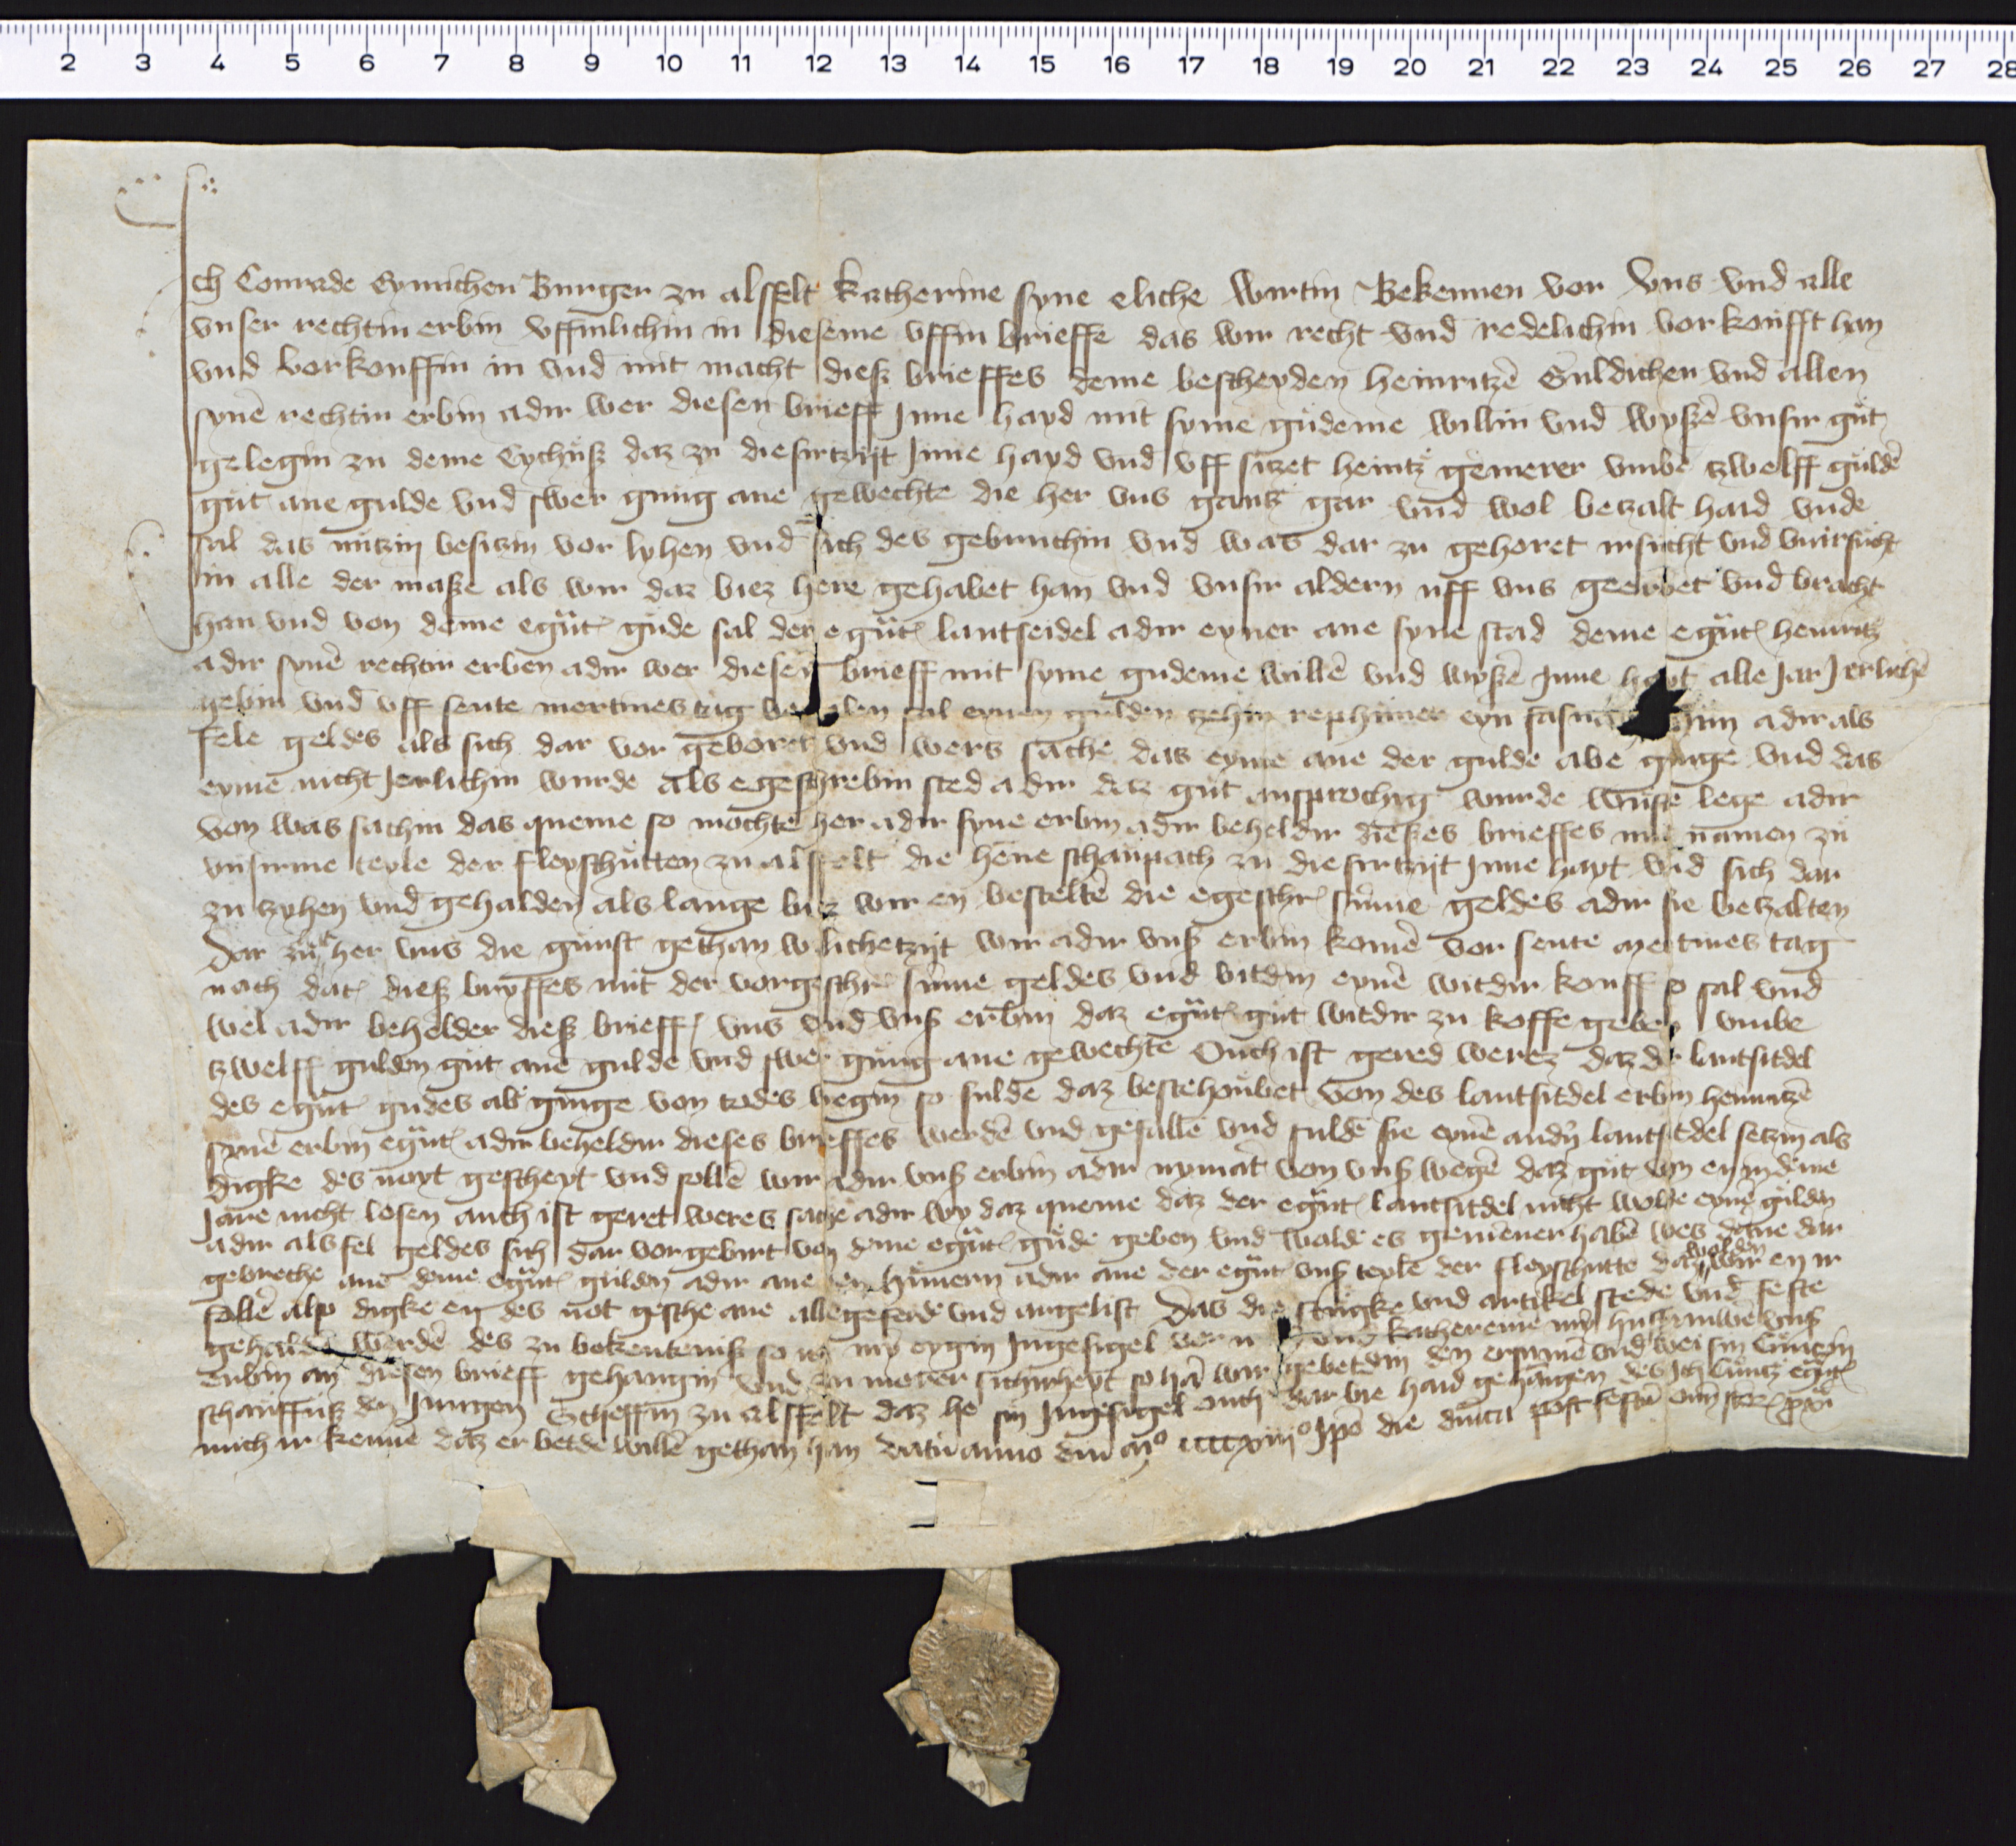 2 3 4 5 6 7 8 9 10 11 12 13 14 15 16 17 18 19 20 21 22 23 24 25 26 27 28
Ich Conrade Eymichen Burger zu alsfelt Katherine syne eliche wirtin Bekennen vor vns vnd alle
vnser rechtin erbin vffinlichin in dieseme vffin brieffe das wir recht vnd redelichin vorkoufft han
vnd vorkouffin in vnd mit macht dieß brieffes deme bescheyden Heinritzē Guldichen vnd allen
synē rechtin erbin adir wer diesen brieff Inne hayd mit syme gudeme willin vnd wyßē vnsir gut
gelegin zu deme Eychuß daz zu diesirtzijt Inne hayd vnd vff sitzet heintz gemerer vmbe tzwelff guldē
gut ane gulde vnd swer gnug ane gewechte die her vns gantz gar vnd wol betzalt haid vnde
sal das nutzin besitzin vor lyhen vnd sich des gebruchin vnd was dar zu gehoret irsucht vnd vnirsucht
in alle der maße als wir daz biez here gehabet han vnd vnsir aldern uff vns geerbet vnd bracht
han vnd von deme egūt gude sal der egūt lantseidel adir eyner ane syne stad deme egūt heinritz
adir synē rechtin erben adir wer diesen brieff mit syme gudeme willē vnd wyßē Inne hayt alle Jar Jerlichē
gebin vnd vff sente mertines tag eynen gulden tzehin rephuner eyn adir als
fele geldes als sich dar vor geboret vnd wers sache das eyme ane der gulde abe ginge vnd das
eyme nicht Jerlichin wurde als egeschrebin sted adir daz gut ansprochig wurde wuste lege adir
von was sachin das queme so mochte her adir syne erbin adir beheldir dießes brieffes mit namen zu
vnsirme teyle der fleyschutten zu alsfelt die hene schaupach zu diesirtzijt Inne hayt vnd sich dar
zu tzyhen vnd gehalden als lange biz wir en bestelte die egeschr sūme geldes adir sie betzalten
Dar zu her vns die gunst gethan wilichetzijt wir adir vnß erbin komē vor sente mertines tag
nach dat dieß bryffes mit der vorgeschr sūme geldes vnd bitdin eynē witdir kouff so sal vnd
wel adir behelder dieß brieff vns vnd vnß erbin daz egūt gut witdir zu koffe geben vmbe
tzwelff guldin gut ane gulde vnd swer gnug ane gewechte Ouch ist gered werez daz der lantsitdel
des egūt gudes abe ginge von todes wegin so sulde daz bestehoubet von des lantsitdel erbin heinritzē
synē erbin egūt adir beheldir dieses brieffes werdē vnd gefallē vnd sulde sie eynē andīn lantsitdel setzin als
digke des noyt gescheyt vnd sollē wir adir vnß erbin adir nymāt von vnß wegē daz gut vm en in deme
Jare nicht losen auch ist geret weres sache adir wy daz queme daz der egūt lantsitdel nicht wolde eynē gulden
adir als fel geldes sich dar vor gebirt von deme egūt gude geben vnd wolde es gemener habē wes deme dar
gebreche ane deme egūt gulden adir ane den hunern adir ane der egūt vnß teyle der fleyschutte daz wolden wir en ir
follē also digke en des not gesche ane allegeferde vnd argelist Das die stugke vnd artikel stede vnd feste
gehaldē werdē des zu bekenteniß so my eygin Ingesigel vor vnd katherine my husfrauwē vnß
erbin an diesen brieff gehangin vnd zu merer sichirheyt so hā wir gebetdin den ersamē vnd weisin Cuntzin
schauffuß den Jungen Scheffin zu alsfelt daz he sin Ingesigel ouch dar bie haid gehangen des Ich Cuntz egūt
mich ir kenne daz er betde willē gethan han datū anno dni mº ccccxiiiº Ipō die dnica post festū